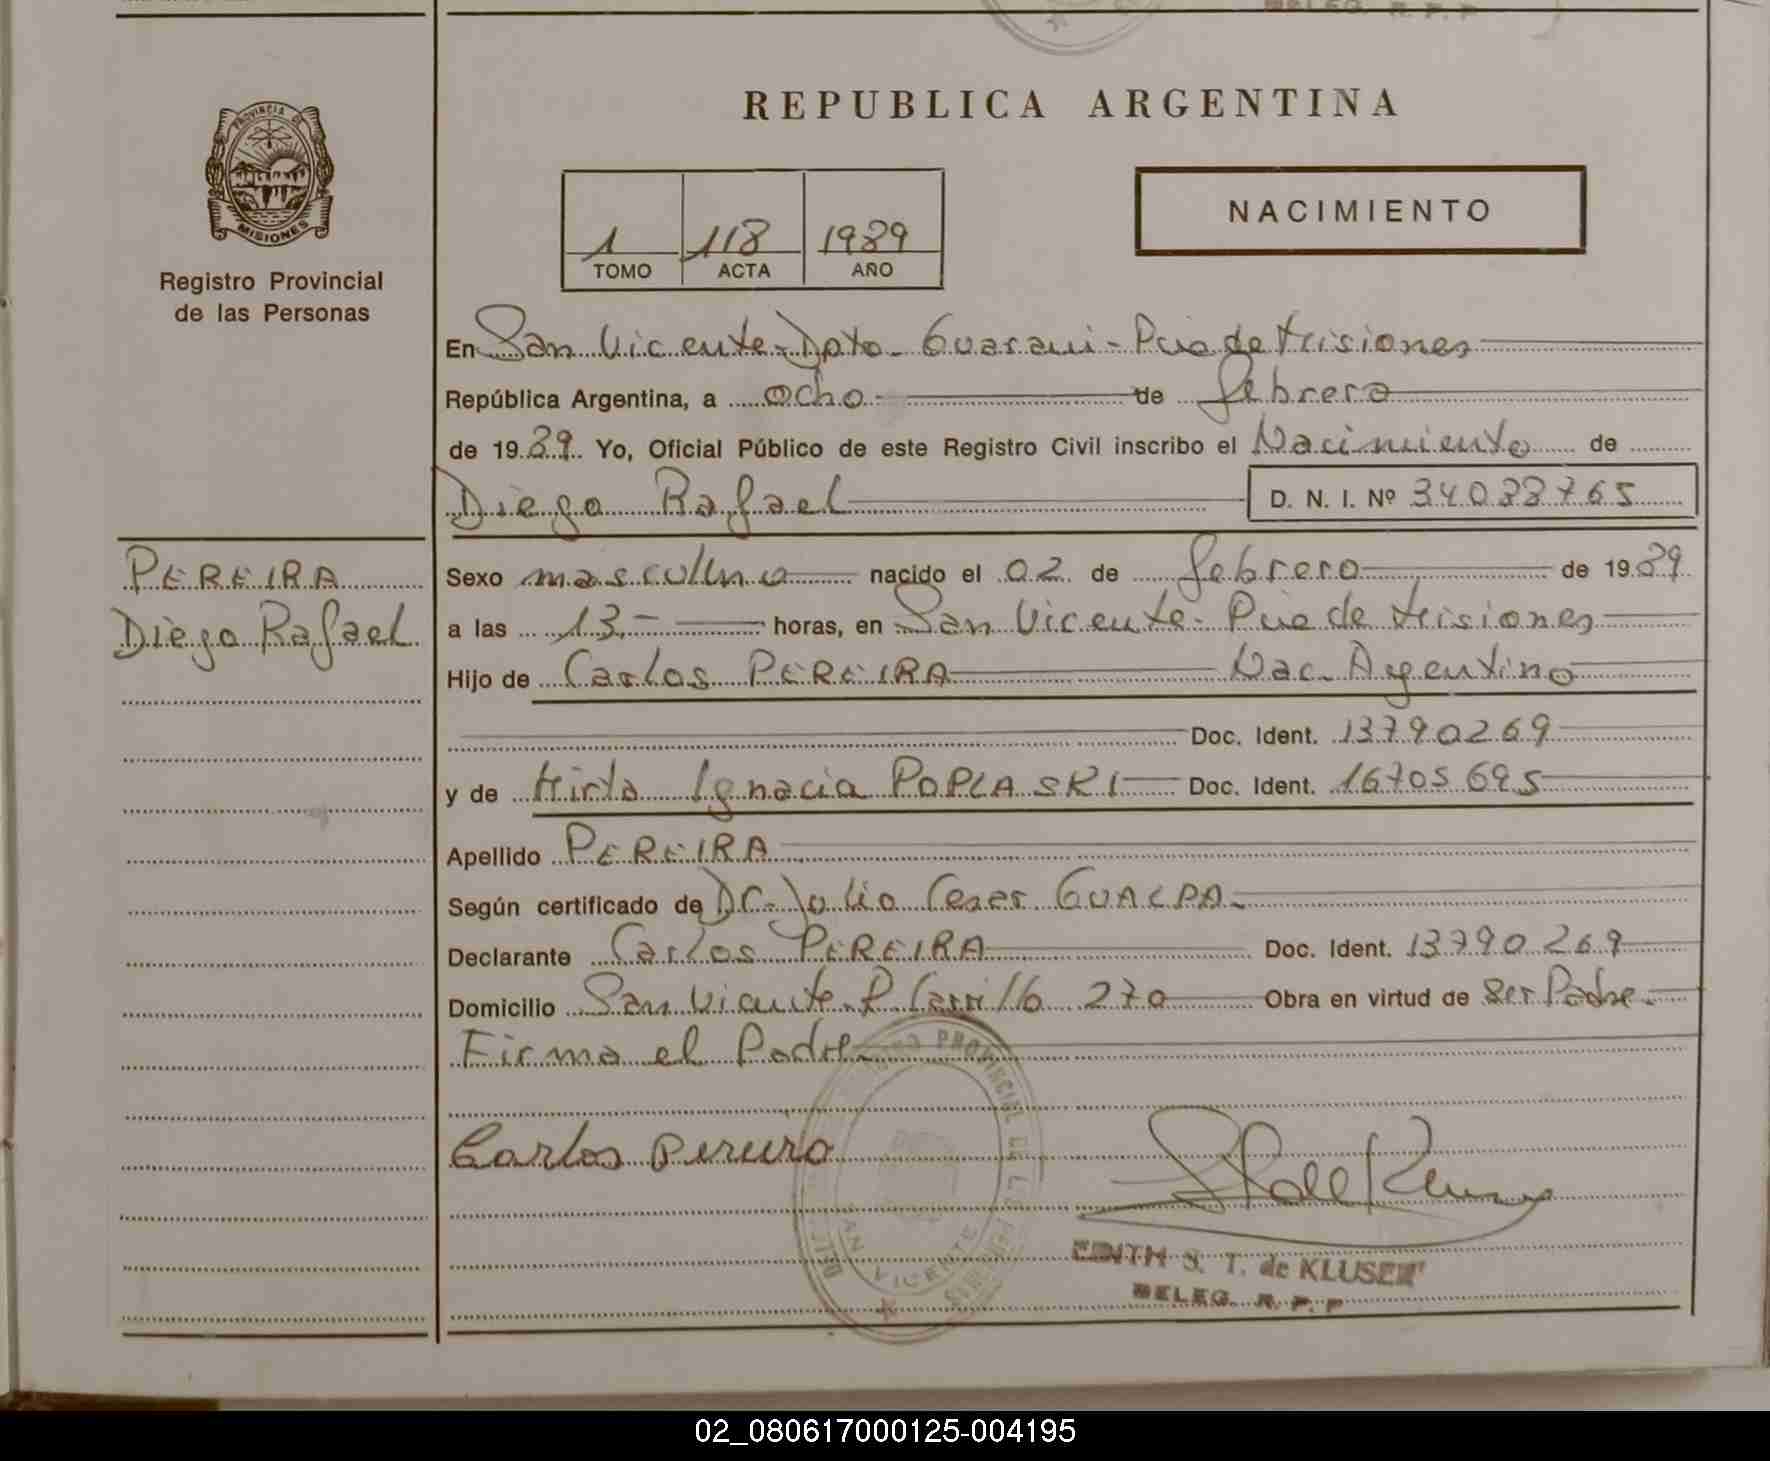 REPUBLICA ARGENTINA
PROVINCIA DE
MISIONES
Registro Provincial
de las Personas
1 118 1989
TOMO ACTA AÑO
NACIMIENTO
En San Vicente - Dpto. Guarani - Pcia de Misiones
República Argentina, a ocho de febrero
de 1989 Yo, Oficial Público de este Registro Civil inscribo el Nacimiento de
Diego Rafael D. N. I. Nº 34088765
PEREIRA
Diego Rafael
Sexo masculino nacido el 02 de febrero de 1989
a las 13.- horas, en San Vicente - Pcia de Misiones
Hijo de Carlos PEREIRA Nac. Argentino
Doc. Ident. 13790269
y de Mirta Ignacia POPLASKI Doc. Ident. 16705695
Apellido PEREIRA
Según certificado de Dr. Julio Cesar GUALPA.
Declarante Carlos PEREIRA Doc. Ident. 13790269
Domicilio San Vicente - R. Carrillo 270 Obra en virtud de ser Padre.
Firma el Padre.
Carlos Pereira
EDITH S. T. de KLUSENER
DELEG. R. P. P
SAN VICENTE
02_080617000125-004195